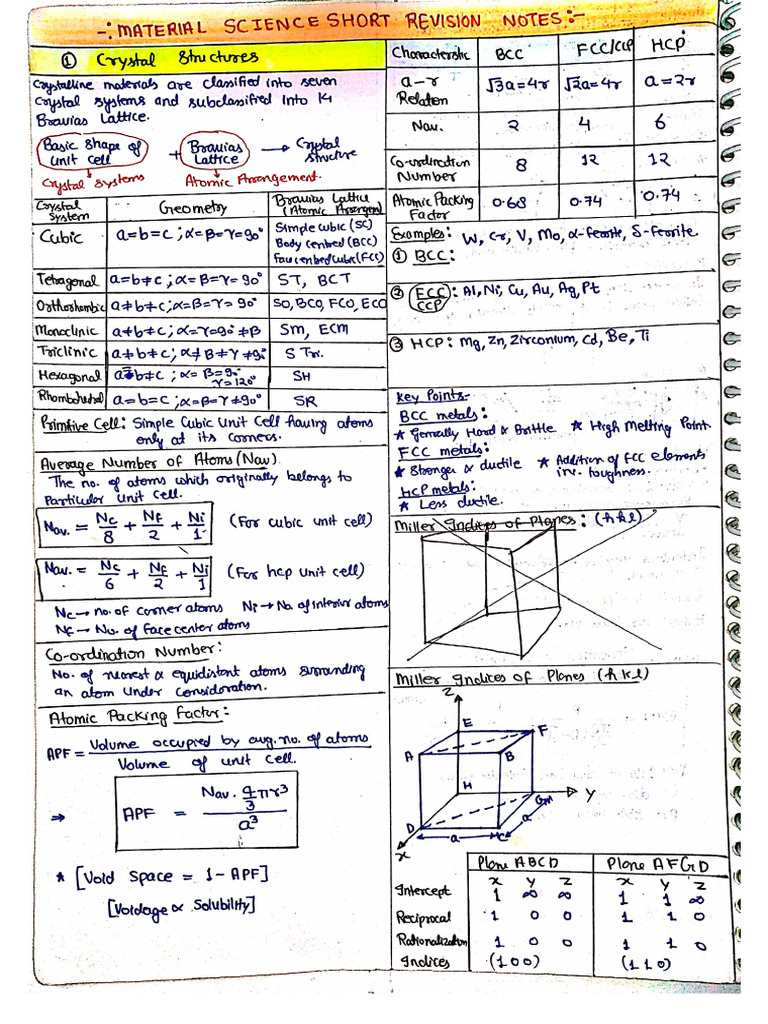 -: MATERIAL SCIENCE SHORT REVISION NOTES:-
① Crystal Structures
Crystalline materials are classified into seven
crystal systems and subclassified into 14
Bravias Lattice.
Basic Shape of unit cell + Bravias Lattice → Crystal structure
Crystal Systems Atomic Arrangement.
Crystal System Geometry Bravias Lattice (Atomic Arrangen)
Cubic a=b=c ; α=β=γ=90° Simple cubic (SC)
Body centred (BCC)
Face centred cubic (FCC)
Tetragonal a=b≠c ; α=β=γ=90° ST, BCT
Orthorhombic a≠b≠c ; α=β=γ=90° SO, BCO, FCO, ECO
Monoclinic a≠b≠c ; α=γ=90°≠β SM, ECM
Triclinic a≠b≠c ; α≠β≠γ≠90° S Tri.
Hexagonal a=b≠c ; α=β=90° γ=120° SH
Rhombohedral a=b=c ; α=β=γ≠90° SR
Primitive Cell: Simple Cubic Unit Cell having atoms
only at its corners.
Average Number of Atoms (Nav)
The no. of atoms which originally belongs to
particular unit cell.
Nav. = Nc/8 + Nf/2 + Ni/1 (For cubic unit cell)
Nav. = Nc/6 + Nf/2 + Ni/1 (For hcp unit cell)
Nc → no. of corner atoms Ni → No. of interior atoms
Nf → No. of face center atoms
Co-ordination Number:
No. of nearest & equidistant atoms surrounding
an atom under consideration.
Atomic Packing Factor:
APF = Volume occupied by avg. no. of atoms
Volume of unit cell.
⇒ APF = Nav. 4/3 πr³ / a³
* [Void Space = 1 - APF]
[Voidage ∝ Solubility]
Characteristic BCC FCC/CCP HCP
a-r Relation √3a=4r √2a=4r a=2r
Nav. 2 4 6
Co-ordination Number 8 12 12
Atomic Packing Factor 0.68 0.74 0.74
Examples: W, Cr, V, Mo, α-ferrite, δ-ferrite
① BCC:
② FCC CCP : Al, Ni, Cu, Au, Ag, Pt
③ HCP: Mg, Zn, Zirconium, Cd, Be, Ti
Key Points-
BCC metals:
* Generally Hard & Brittle * High Melting Point.
FCC metals:
* Stronger & ductile * Addition of FCC elements
inc. toughness.
HCP metals:
* Less ductile.
Miller Indices of Planes: (hkl)
Miller Indices of Planes (hkl)
Z
E
F
A
B
H
Y
G
D
C
a
a
X
Plane ABCD Plane AFGD
X Y Z X Y Z
Intercept 1 ∞ ∞ 1 1 ∞
Reciprocal 1 0 0 1 1 0
Rationalization 1 0 0 1 1 0
Indices (100) (110)